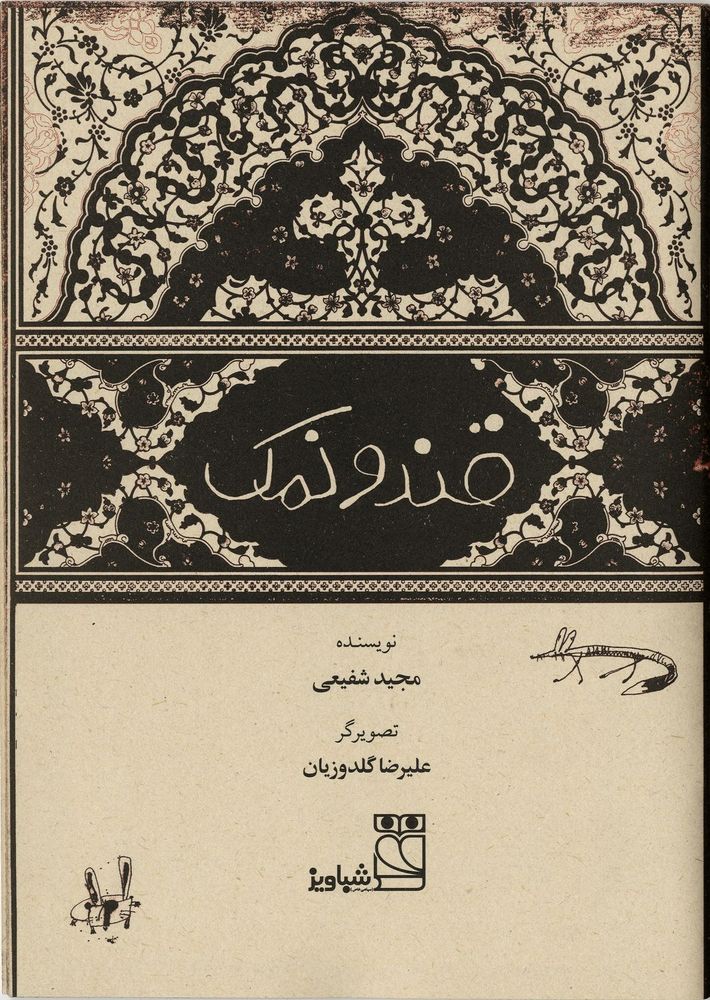 قند و نمک
نویسنده
مجید شفیعی
تصویرگر
علیرضا گلدوزیان
شباویز